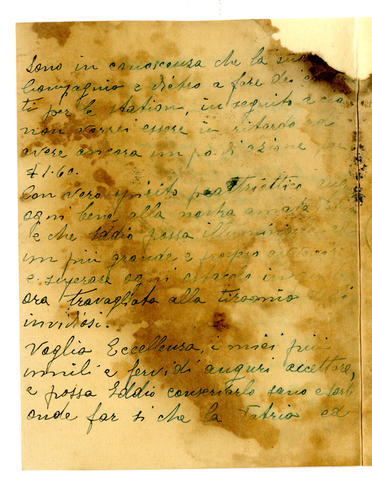 Sono in conoscenza che la sua
Compagnia è dietro a fare dei
ti per le station, in seguito è
non vorrei essere in ritardo
avere ancora un po di azione
$1.60.
Con vero spirito patriottico
ogni bene alla nostra amata
e che Iddio possa
un più grande e propio
e superare ogni ostacolo in
ora travagliata alla
invidiosi.
Voglia Eccellenza, i miei più
umili e fervidi auguri accettare,
e possa Iddio conservarlo sano e forte
onde far si che la Patria ed